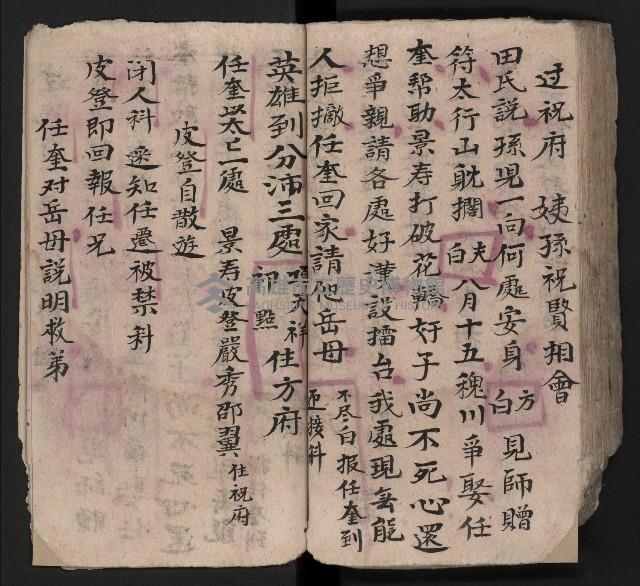 过祝府 姨孫祝賢相會
田氏説孫児一向何處安身 方白 見師贈
符太行山躭擱 夫白 八月十五槐川爭娶任
奎幇助景寿打破花轎奸子尚不死心還
想爭親請各處好漢設擂台我處現無能
人拒擋任奎回家請祝岳母 不尽白报任奎到 迎接科
英雄到分沛三處 祥 住方府 初點
任奎以太巳一處 景寿皮登嚴秀邵翼 住祝府
皮登自散遊
闭人科 采知任遷被禁科
皮登即回報任兄
任奎对岳母説明救弟
高雄市立歷史博物館
KAOHSIUNG MUSEUM OF HISTORY